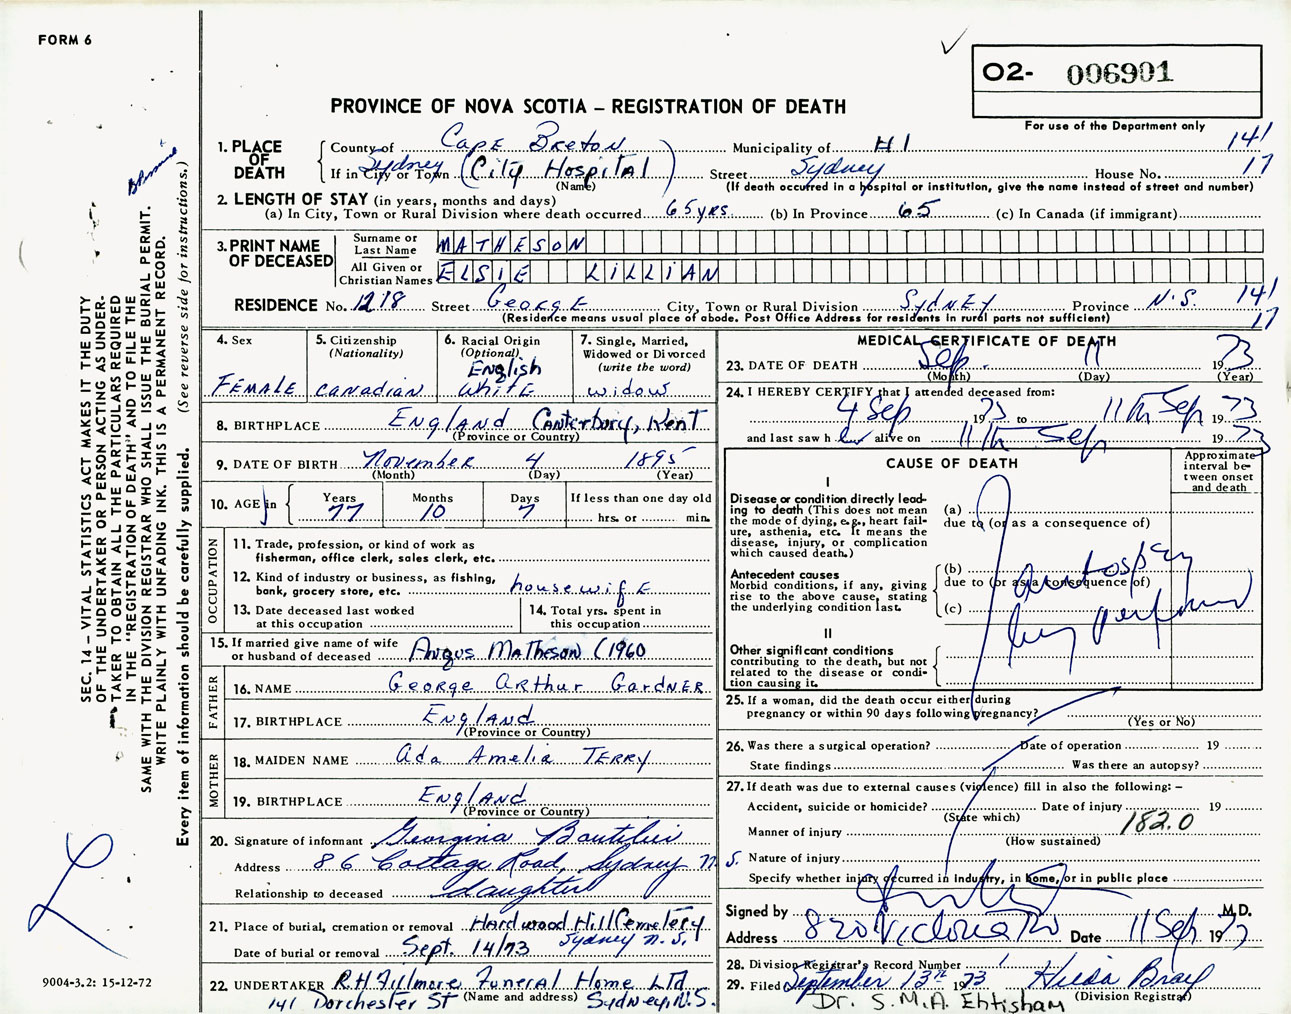 FORM 6
O2- 006901
PROVINCE OF NOVA SCOTIA – REGISTRATION OF DEATH
For use of the Department only
1. PLACE OF DEATH
County of Cape Breton Municipality of H1 141
If in City or Town Sydney (City Hospital) Street Sydney House No. 17
(Name) (If death occurred in a hospital or institution, give the name instead of street and number)
2. LENGTH OF STAY (in years, months and days)
(a) In City, Town or Rural Division where death occurred 65 yrs. (b) In Province 65 (c) In Canada (if immigrant)
3. PRINT NAME OF DECEASED
Surname or Last Name MATHESON
All Given or Christian Names ELSIE LILLIAN
RESIDENCE No. 1218 Street George City, Town or Rural Division Sydney Province N.S. 141
(Residence means usual place of abode. Post Office Address for residents in rural parts not sufficient) 17
4. Sex
Female
5. Citizenship
(Nationality)
Canadian
6. Racial Origin
(Optional)
English
White
7. Single, Married,
Widowed or Divorced
(write the word)
widow
8. BIRTHPLACE England Canterbury, Kent
(Province or Country)
9. DATE OF BIRTH November 4 1895
(Month) (Day) (Year)
10. AGE in Years 77 Months 10 Days 7 If less than one day old
hrs. or min.
OCCUPATION
11. Trade, profession, or kind of work as
fisherman, office clerk, sales clerk, etc.
12. Kind of industry or business, as fishing,
bank, grocery store, etc. housewife
13. Date deceased last worked
at this occupation
14. Total yrs. spent in
this occupation
15. If married give name of wife
or husband of deceased Angus Matheson (1960
FATHER
16. NAME George Arthur Gardner
17. BIRTHPLACE England
(Province or Country)
MOTHER
18. MAIDEN NAME Ada Amelia Terry
19. BIRTHPLACE England
(Province or Country)
20. Signature of informant Georgina
Address 86 Cottage Road, Sydney N.S.
Relationship to deceased daughter
21. Place of burial, cremation or removal Hardwood Hill Cemetery
Sydney N.S.
Date of burial or removal Sept. 14/73
22. UNDERTAKER R.H Fillmore Funeral Home Ltd
(Name and address)
141 Dorchester St Sydney, N.S.
MEDICAL CERTIFICATE OF DEATH
23. DATE OF DEATH Sep. 11 1973
(Month) (Day) (Year)
24. I HEREBY CERTIFY that I attended deceased from:
4 Sep 1973 to 11th Sep 1973
and last saw her alive on 11th Sep 1973
CAUSE OF DEATH
Approximate interval between onset and death
I
Disease or condition directly leading to death (This does not mean the mode of dying, e.g., heart failure, asthenia, etc. It means the disease, injury, or complication which caused death.)
(a)
due to (or as a consequence of)
Antecedent causes
Morbid conditions, if any, giving rise to the above cause, stating the underlying condition last.
(b)
due to (or as a consequence of)
(c)
autopsy
being performed
II
Other significant conditions
contributing to the death, but not related to the disease or condition causing it.
25. If a woman, did the death occur either during
pregnancy or within 90 days following pregnancy?
(Yes or No)
26. Was there a surgical operation? Date of operation 19
State findings Was there an autopsy?
27. If death was due to external causes (violence) fill in also the following: –
Accident, suicide or homicide? Date of injury 19
(State which) 182.0
Manner of injury
(How sustained)
Nature of injury
Specify whether injury occurred in Industry, in home, or in public place
Signed by M.D.
Address 820 Victoria Rd Date 11 Sep 1973
28. Division Registrar's Record Number
29. Filed September 13th 1973 Hilda Bray
(Division Registrar)
Dr. S.M.A. Ehtisham
SEC. 14 – VITAL STATISTICS ACT MAKES IT THE DUTY
OF THE UNDERTAKER OR PERSON ACTING AS UNDER-
TAKER TO OBTAIN ALL THE PARTICULARS REQUIRED
IN THE "REGISTRATION OF DEATH" AND TO FILE THE
SAME WITH THE DIVISION REGISTRAR WHO SHALL ISSUE THE BURIAL PERMIT.
WRITE PLAINLY WITH UNFADING INK. THIS IS A PERMANENT RECORD.
Every item of information should be carefully supplied. (See reverse side for instructions.)
9004-3.2: 15-12-72